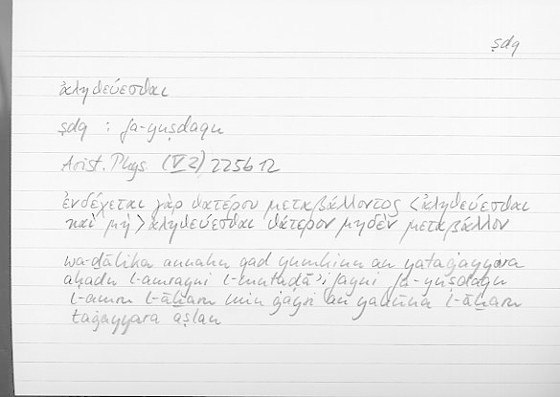 ṣdq
ἀληθεύεσθαι
ṣdq : fa-yuṣdaqu
Arist. Phys. (V 2) 225b12
ἐνδέχεται γὰρ θατέρου μεταβάλλοντος <ἀληθεύεσθαι
καὶ μὴ> ἀληθεύεσθαι θάτερον μηδὲν μεταβάλλον
wa-ḏālika annahu qad yumkinu an yataġayyara
aḥadu l-amrayni l-mutaḍā'ifayni fa-yuṣdaqu
l-amru l-āḫaru min ġayri an yakūna l-āḫaru
taġayyara aṣlan